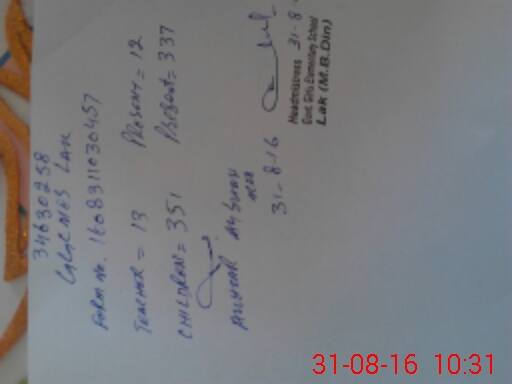 34630258
GGCMES LAK
FORM No. 16083111030457
TEACHER = 13 PRESENT = 12
CHILDREN = 351 PRESENT = 337
31-8-16
Headmistress 31-8-
Govt. Girls Elementary School
Lak (M.B.Din)
31-08-16 10:31